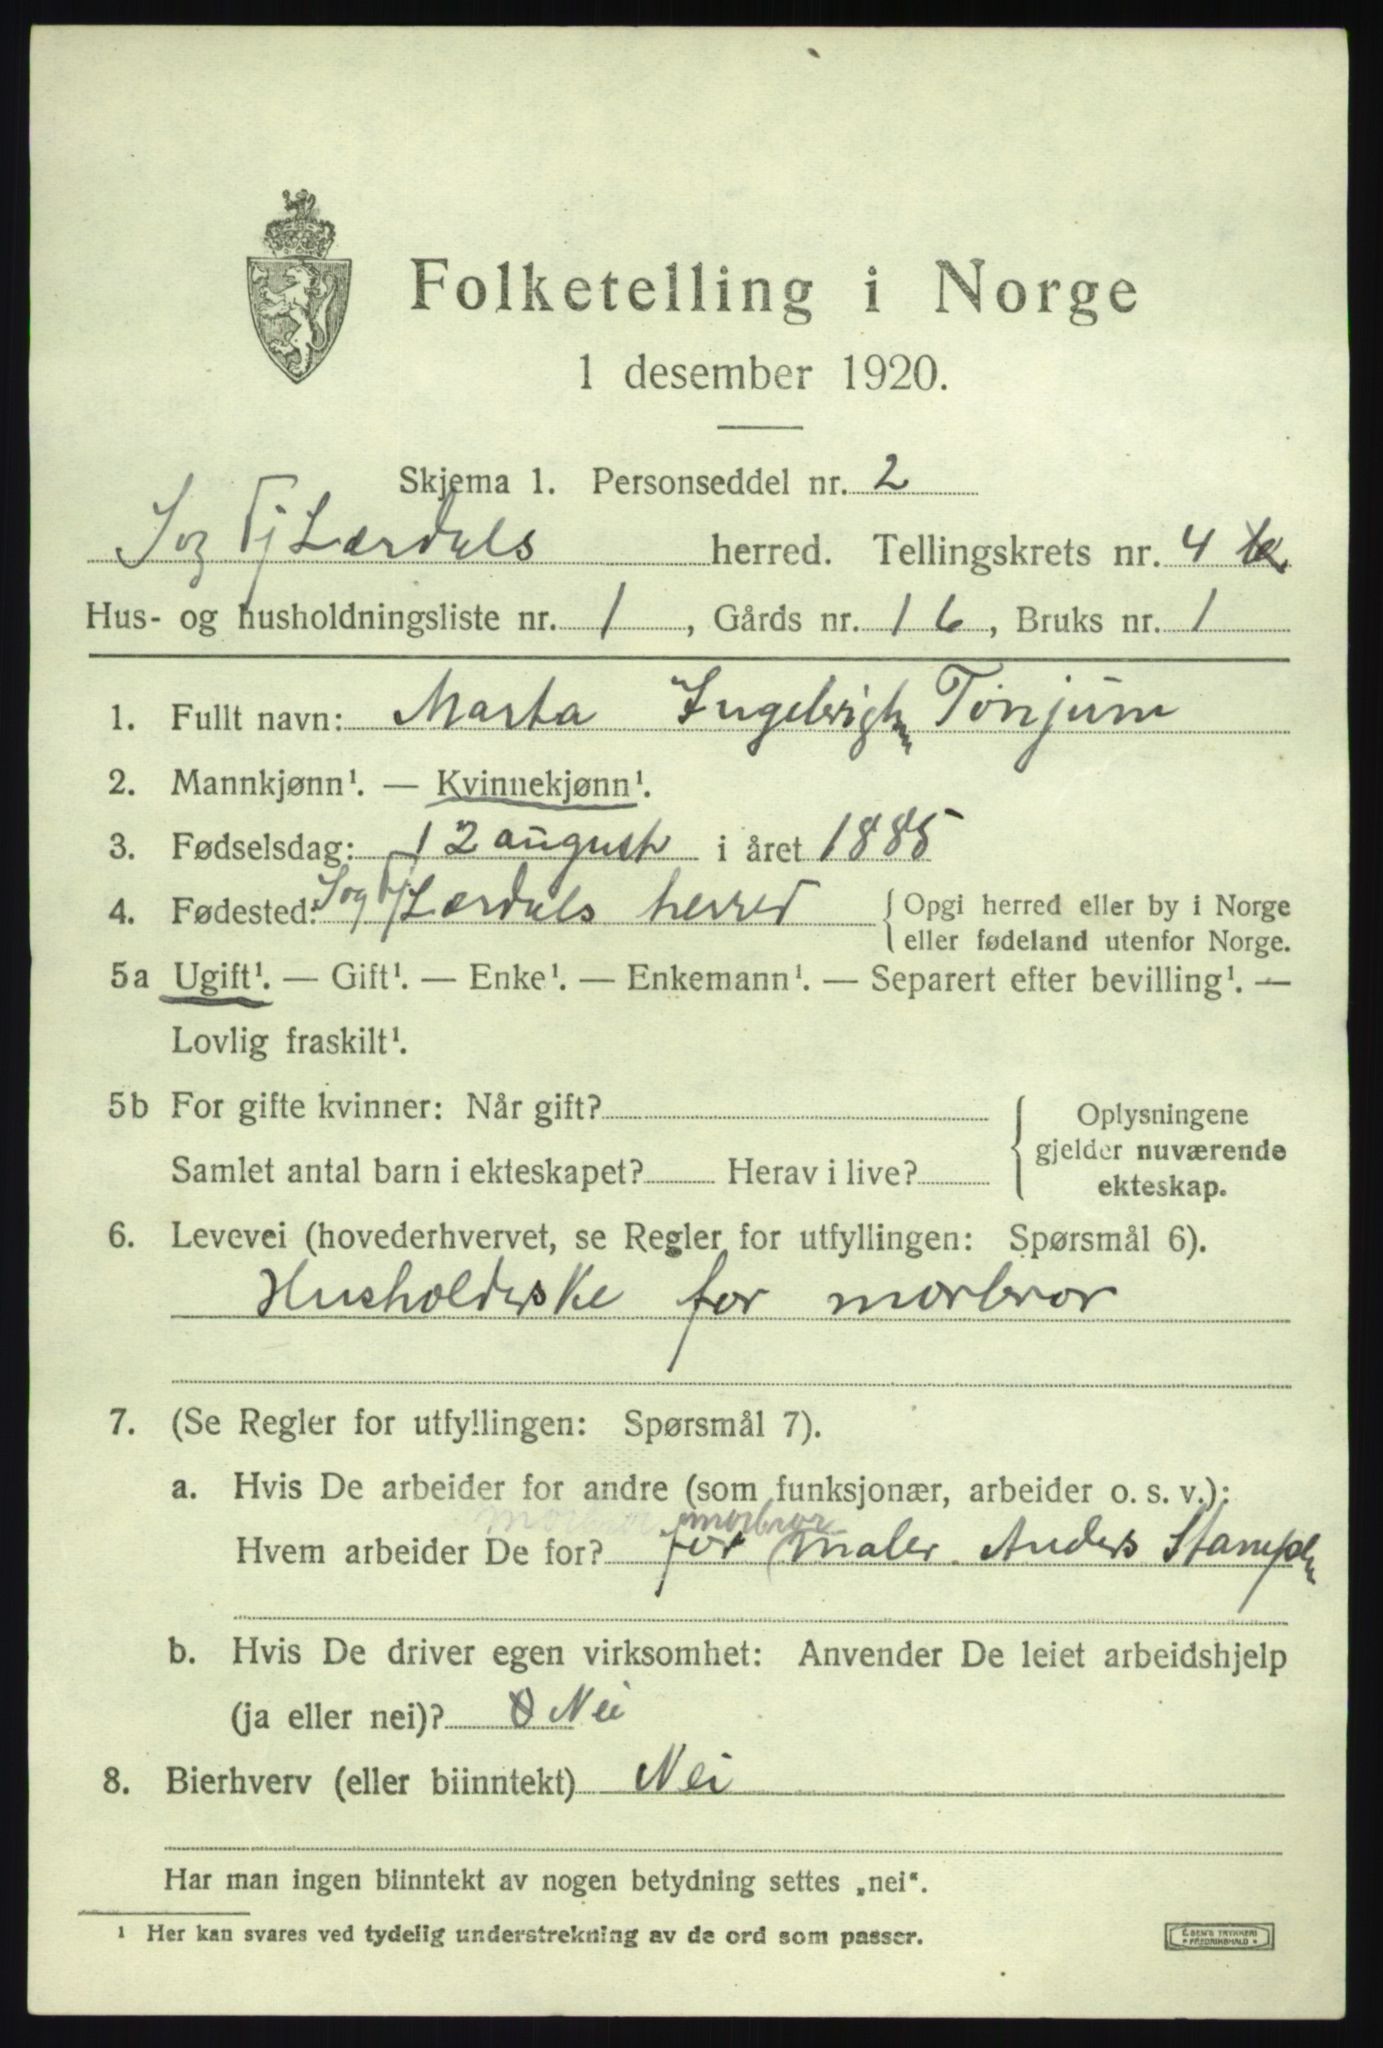 Folketelling i Norge
1 desember 1920.
Skjema 1. Personseddel nr. 2
Sogn Fj Lærdals herred. Tellingskrets nr. 4
Hus- og husholdningsliste nr. 1, Gårds nr. 16, Bruks nr. 1
1. Fullt navn: Marta Tønjum
2. Mannkjønn¹. — Kvinnekjønn¹.
3. Fødselsdag: 12 august i året 1885
4. Fødested: Sogn Fj Lærdals herred { Opgi herred eller by i Norge
eller fødeland utenfor Norge.
5a Ugift¹. — Gift¹. — Enke¹. — Enkemann¹. — Separert efter bevilling¹. —
Lovlig fraskilt¹.
5b For gifte kvinner: Når gift?
Samlet antal barn i ekteskapet? Herav i live?
{ Oplysningene
gjelder nuværende
ekteskap.
6. Levevei (hovederhvervet, se Regler for utfyllingen: Spørsmål 6).
Husholderske for morbror
7. (Se Regler for utfyllingen: Spørsmål 7).
a. Hvis De arbeider for andre (som funksjonær, arbeider o. s. v.):
morbror morbror
Hvem arbeider De for? for maler Anders
b. Hvis De driver egen virksomhet: Anvender De leiet arbeidshjelp
(ja eller nei)? Nei
8. Bierhverv (eller biinntekt) Nei
Har man ingen biinntekt av nogen betydning settes „nei“.
¹ Her kan svares ved tydelig understrekning av de ord som passer.
TRYKKERI
FREDRIKSHALD